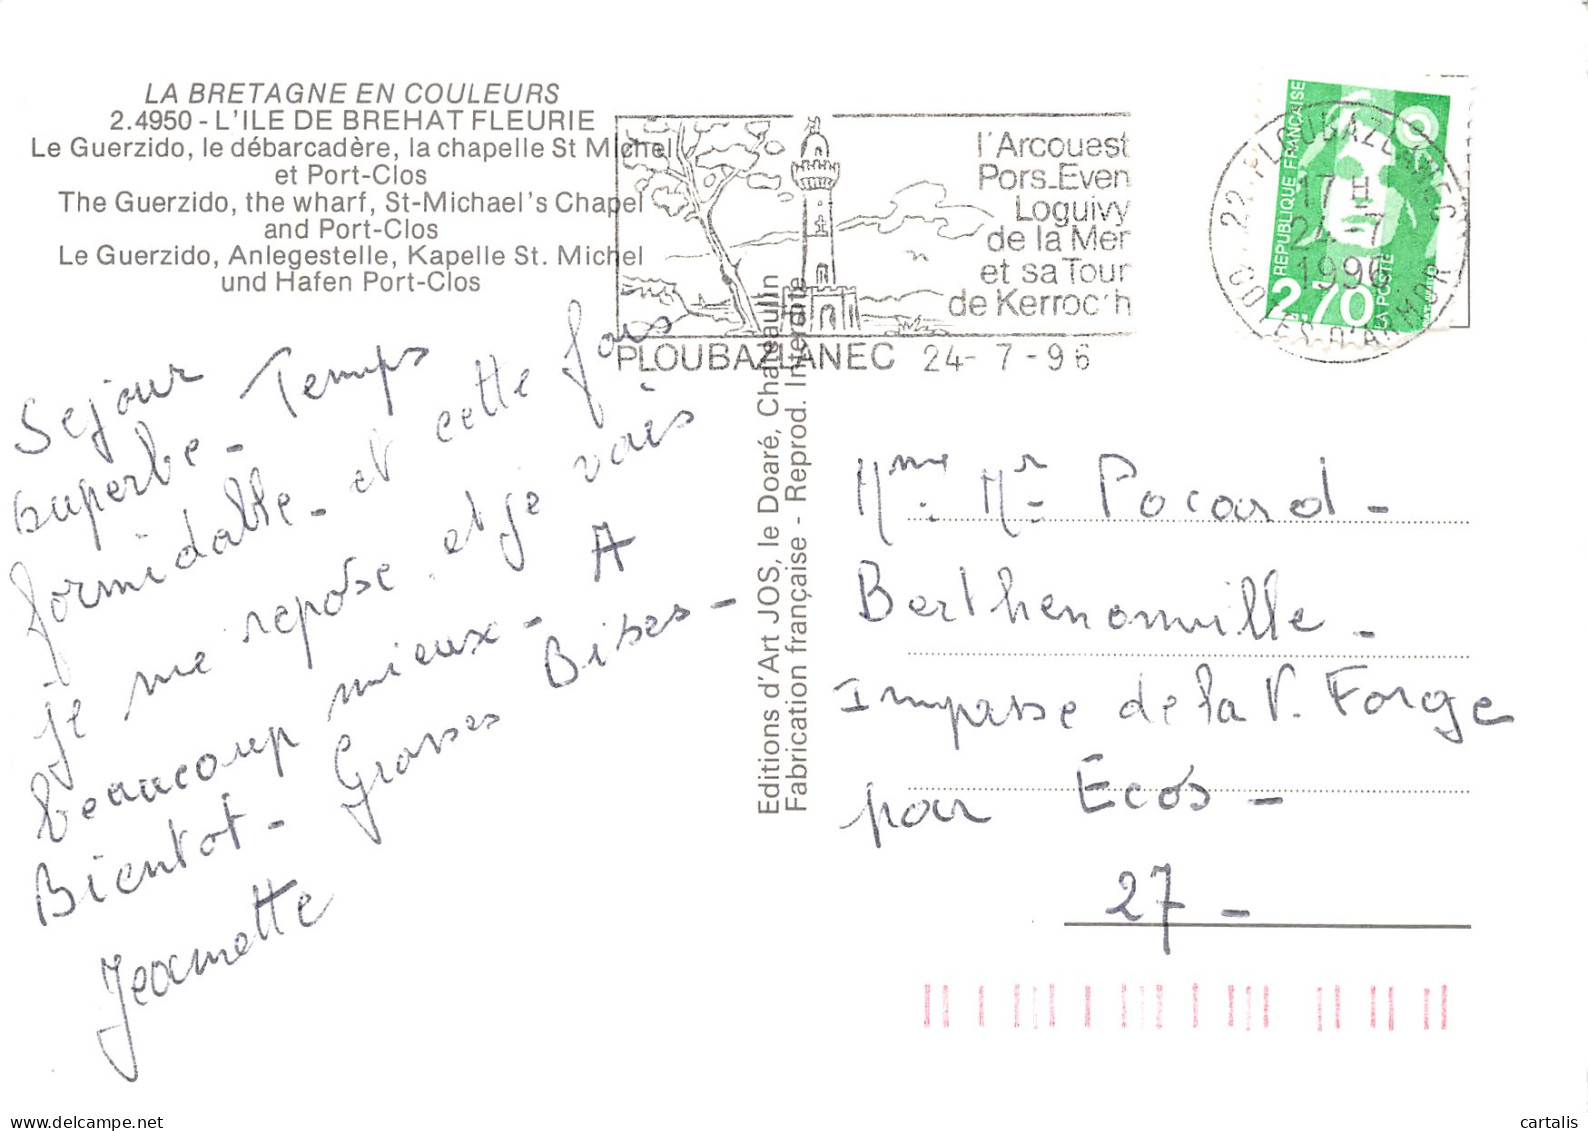 LA BRETAGNE EN COULEURS
2.4950 - L'ILE DE BREHAT FLEURIE
Le Guerzido, le débarcadère, la chapelle St Michel
et Port-Clos
The Guerzido, the wharf, St-Michael's Chapel
and Port-Clos
Le Guerzido, Anlegestelle, Kapelle St. Michel
und Hafen Port-Clos
l'Arcouest
Pors-Even
Loguivy
de la Mer
et sa Tour
de Kerroc'h
PLOUBAZLANEC 24-7-96
22 PLOUBAZLANEC
17 H
24-7
1996
COTES D'ARMOR
REPUBLIQUE FRANCAISE
2,70
LA POSTE
Sejour
superbe - Temps
formidable - et cette fois
je me repose et je vais
beaucoup mieux - A
Bientot - Grosses Bises -
Jeannette
Editions d'Art JOS, le Doaré, Chateaulin
Fabrication française - Reprod. Interdite
Mme. Mr Pocard -
Berthenonville -
Impasse de la V. Forge
par Ecos -
27 -
cartalis
delcampe.net